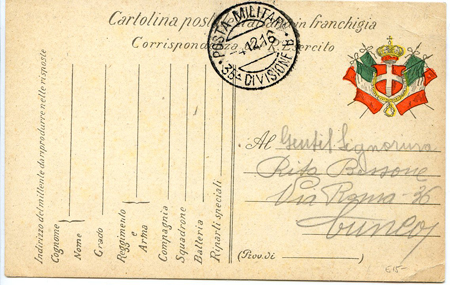 Cartolina postale italiana in franchigia
Corrispondenza del R. Esercito
POSTA MILITARE
4.12.16
35ª DIVISIONE
Al Gentil Signorina
Rita Bassone
Via Roma 36
Cuneo
(Prov. di )
Indirizzo del mittente da riprodurre nelle risposte
Cognome
Nome
Grado
Reggimento
e
Arma
Compagnia
Squadrone
Batteria
Riparti speciali